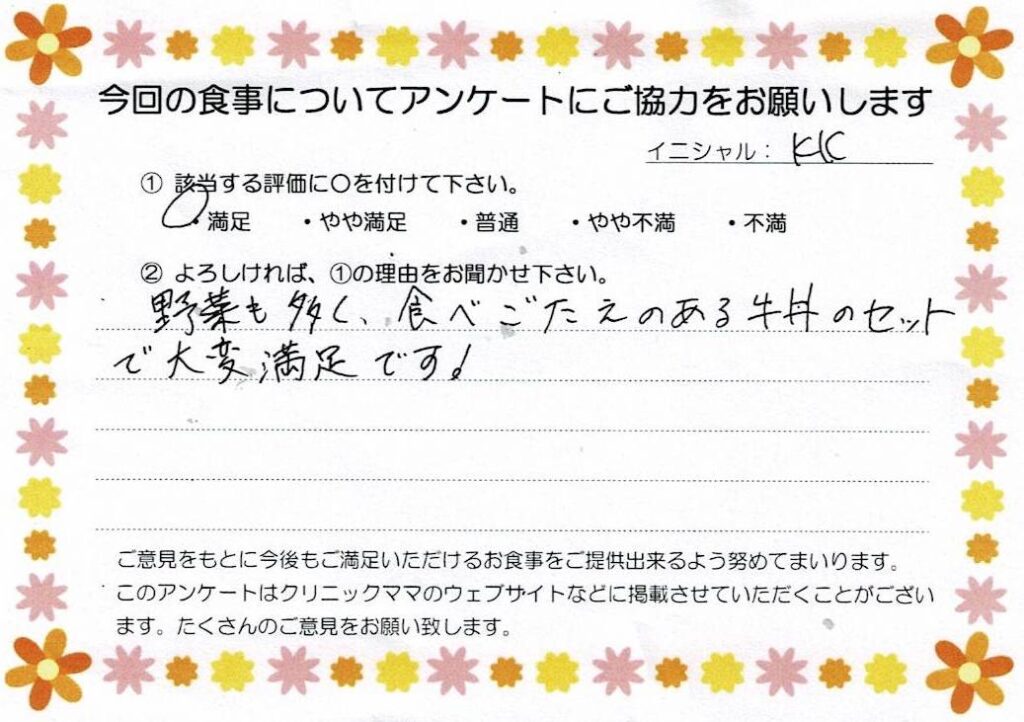 今回の食事についてアンケートにご協力をお願いします
イニシャル： KK
① 該当する評価に〇を付けて下さい。
・満足 ・やや満足 ・普通 ・やや不満 ・不満
② よろしければ、①の理由をお聞かせ下さい。
野菜も多く、食べごたえのある牛丼のセット
で大変満足です!
ご意見をもとに今後もご満足いただけるお食事をご提供出来るよう努めてまいります。
このアンケートはクリニックママのウェブサイトなどに掲載させていただくことがござい
ます。たくさんのご意見をお願い致します。